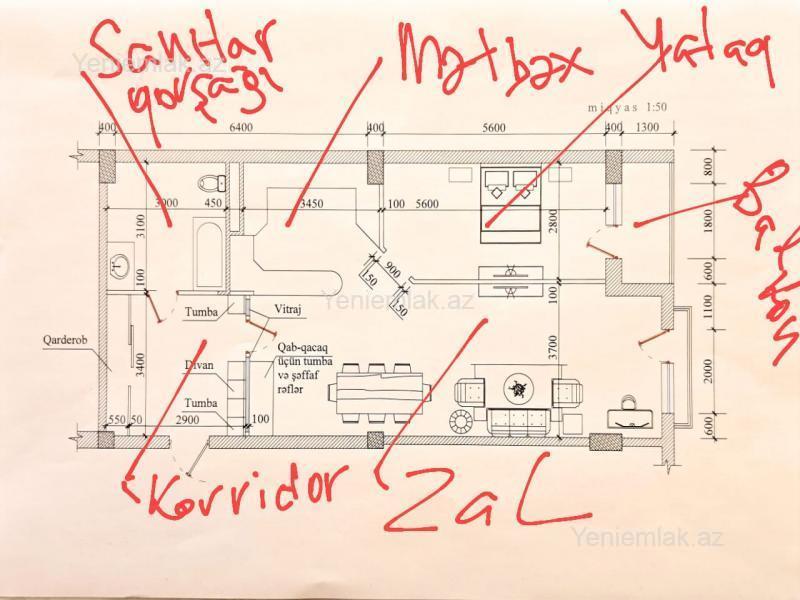 Sanitar
qovşağı
Mətbəx
Yataq
Yeniemlak.az
Yeniemlak.az
miqyas 1:50
400
6400
400
5600
400
1300
3000
450
3450
100
5600
2800
800
1800
600
3100
100
900
150
150
100
1100
Balkon
Yeniemlak.az
Tumba
Vitraj
Qarderob
3400
Divan
Qab-qacaq
üçün tumba
və şəffaf
rəflər
3700
2000
Tumba
550
50
2900
100
600
Korridor
Zal
Yeniemlak.az